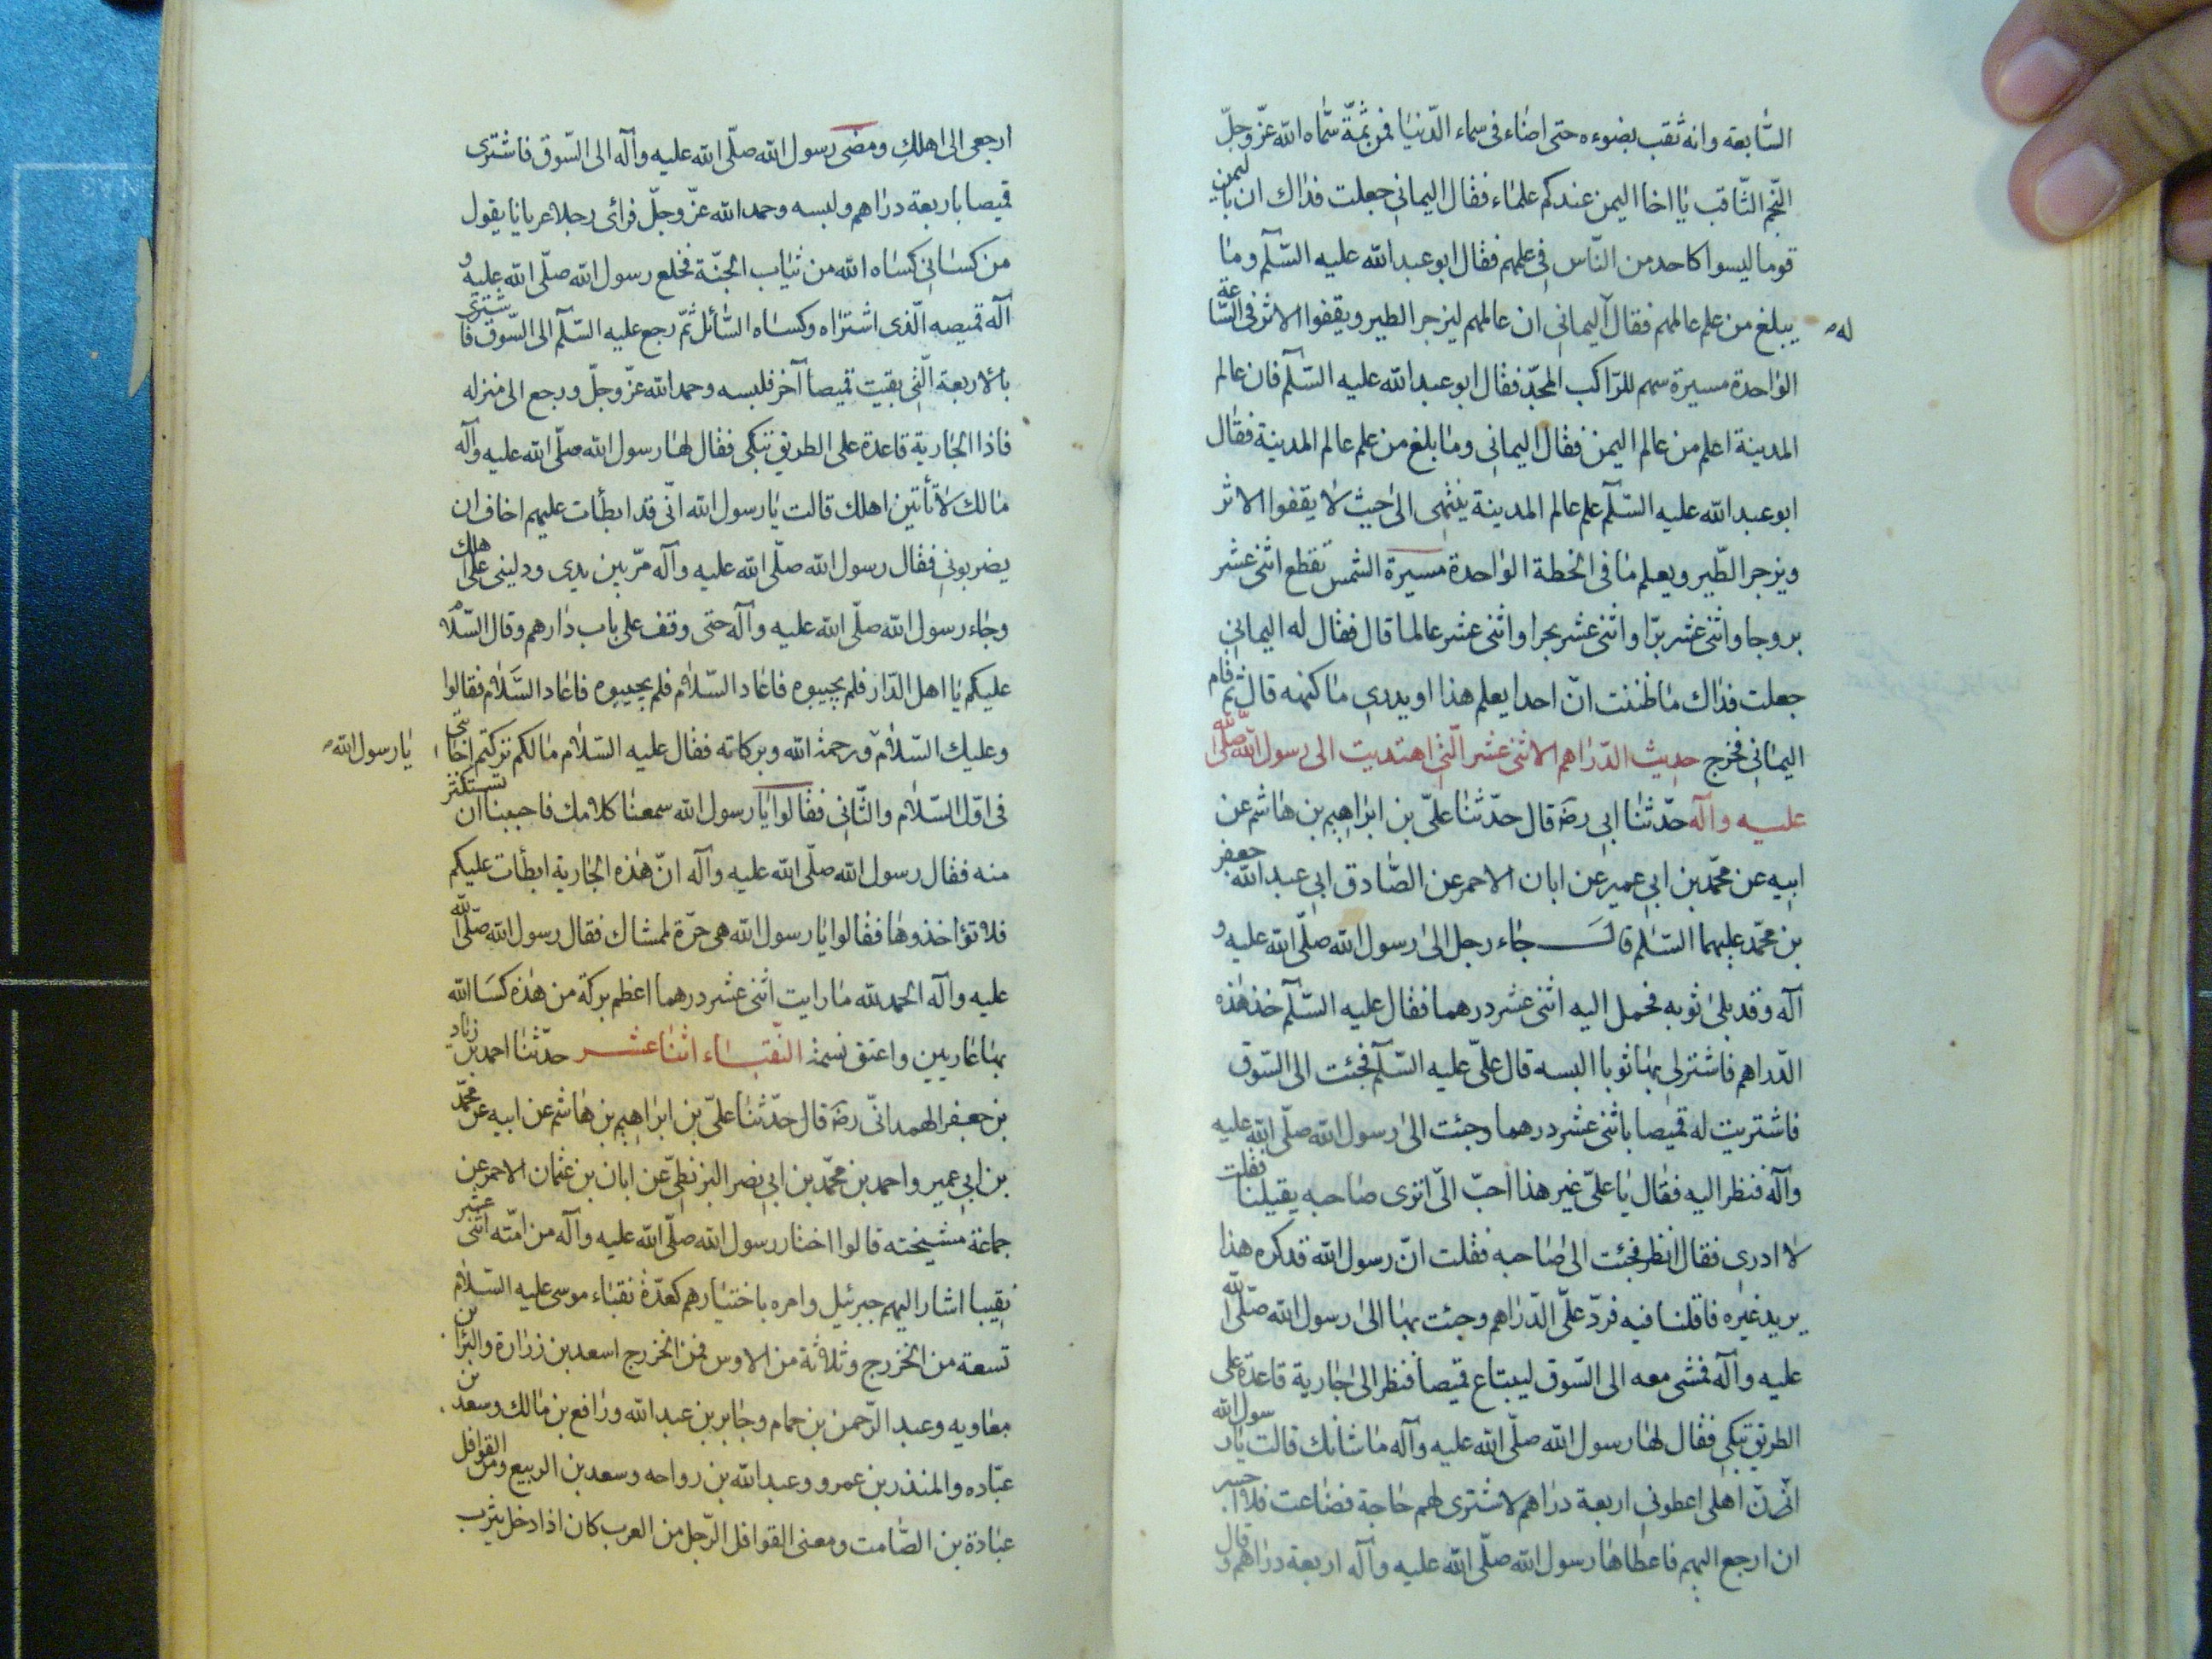 السّابعة وانه ثقب بضوءه حتى اضاء فى سماء الدّنيا فمن ثمّة سمّاه الله عزّ وجلّ
النّجم الثّاقب يا اخا اليمن عندكم علماء فقال اليمانى جعلت فداك ان باليمن
قوما ليسوا كاحد من النّاس فى علمهم فقال ابو عبد الله عليه السّلم وما
يبلغ من علم عالمهم فقال اليمانى ان عالمهم ليزجر الطير ويقفوا الاثر فى السّاعة
له
الواحدة مسيرة سهم للرّاكب المجدّ فقال ابو عبد الله عليه السّلم فان عالم
المدينة اعلم من عالم اليمن فقال اليمانى وما بلغ من علم عالم المدينة فقال
ابو عبد الله عليه السّلم علم عالم المدينة ينتهى الى حيث لا يقفوا الاثر
ويزجر الطّير ويعلم ما فى الخطة الواحدة مسيرة الشمس تقطع اثنى عشر
بروجا واثنى عشر برّا واثنى عشر بحرا واثنى عشر عالما قال فقال له اليمانى
جعلت فداك ما ظننت انّ احدا يعلم هذا او يدرى ما كنهه قال ثم قام
اليمانى فخرج حديث الدّراهم الاثنى عشر الّتى اهتديت الى رسول الله صلّى الله
عليه وآله حدّثنا ابى رضه قال حدّثنا علىّ بن ابراهيم بن هاشم عن
ابيه عن محمّد بن ابى عمير عن ابان الاحمر عن الصّادق ابى عبد الله جعفر
بن محمّد عليهما السّلم قال جاء رجل الى رسول الله صلّى الله عليه و
آله وقد بلى ثوبه فحمل اليه اثنى عشر درهما فقال عليه السّلم خذ هذه
الدّراهم فاشتر لى بها ثوبا البسه قال علىّ عليه السّلم فجئت الى السّوق
فاشتريت له قميصا باثنى عشر درهما وجئت الى رسول الله صلّى الله عليه
وآله فنظر اليه فقال يا علىّ غير هذا احبّ الىّ اترى صاحبه يقيلنا فقلت
لا ادرى فقال انظر فجئت الى صاحبه فقلت انّ رسول الله قد كره هذا
يريد غيره فاقلنا فيه فردّ علىّ الدّراهم وجئت بها الى رسول الله صلّى الله
عليه وآله فمشى معه الى السّوق ليبتاع قميصا فنظر الى جارية قاعدة على
الطريق تبكى فقال لها رسول الله صلّى الله عليه وآله ما شانك قالت يا رسول الله
انّ اهلى اعطونى اربعة دراهم لاشترى لهم حاجة فضاعت فلا اجسر
ان ارجع اليهم فاعطاها رسول الله صلّى الله عليه وآله اربعة دراهم وقال
ارجعى الى اهلكِ ومضى رسول الله صلّى الله عليه وآله الى السّوق فاشترى
قميصا باربعة دراهم ولبسه وحمد الله عزّ وجلّ فرائ رجلا عريانا يقول
من كسانى كساه الله من ثياب الجنّة فخلع رسول الله صلّى الله عليه و
آله قميصه الّذى اشتراه وكساه السّائل ثمّ رجع عليه السّلم الى السّوق فاشترى
بالاربعة الّتى بقيت قميصا آخر فلبسه وحمد الله عزّ وجلّ ورجع الى منزله
فاذا الجارية قاعدة على الطريق تبكى فقال لها رسول الله صلّى الله عليه وآله
مالك لا تأتين اهلك قالت يا رسول الله انّى قد ابطأت عليهم اخاف ان
يضربونى فقال رسول الله صلّى الله عليه وآله مرّ بين يدى ودلينى على اهلك
وجاء رسول الله صلّى الله عليه وآله حتى وقف على باب دارهم وقال السّلام
عليكم يا اهل الدّار فلم يجيبوه فاعاد السّلام فلم يجيبوه فاعاد السّلام فقالوا
وعليك السّلام ورحمة الله وبركاته فقال عليه السّلام مالكم تركتم اجابتى
يا رسول الله
فى اوّل السّلام والثّانى فقالوا يا رسول الله سمعنا كلامك فاحببنا ان تستكثر
منه فقال رسول الله صلّى الله عليه وآله انّ هذه الجارية ابطأت عليكم
فلا تؤاخذوها فقالوا يا رسول الله هى حرّة لممشاك فقال رسول الله صلّى الله
عليه وآله الحمد لله ما رايت اثنى عشر درهما اعظم بركة من هذه كسا الله
بها عاريين واعتق نسمة النّقباء اثنا عشر حدّثنا احمد بن زياد
بن جعفر الهمدانىّ رضه قال حدّثنا علىّ بن ابراهيم بن هاشم عن ابيه عن محمّد
بن ابى عمير واحمد بن محمّد بن ابى نصر البزنطىّ عن ابان بن عثمان الاحمر عن
جماعة مشيخته قالوا اختار رسول الله صلّى الله عليه وآله من امّته اثنى عشر
نقيبا اشار اليهم جبرئيل وامره باختيارهم كعدّة نقباء موسى عليه السّلام
تسعة من الخزرج وثلاثة من الاوس فمن الخزرج اسعد بن زرارة والبرّا بن
معاويه وعبد الرّحمن بن حمام وجابر بن عبد الله ورافع بن مالك وسعد بن
عبّاده والمنذر بن عمرو وعبد الله بن رواحه وسعد بن الربيع ومن القوافل
عبادة بن الصّامت ومعنى القوافل الرّجل من العرب كان اذا دخل يثرب